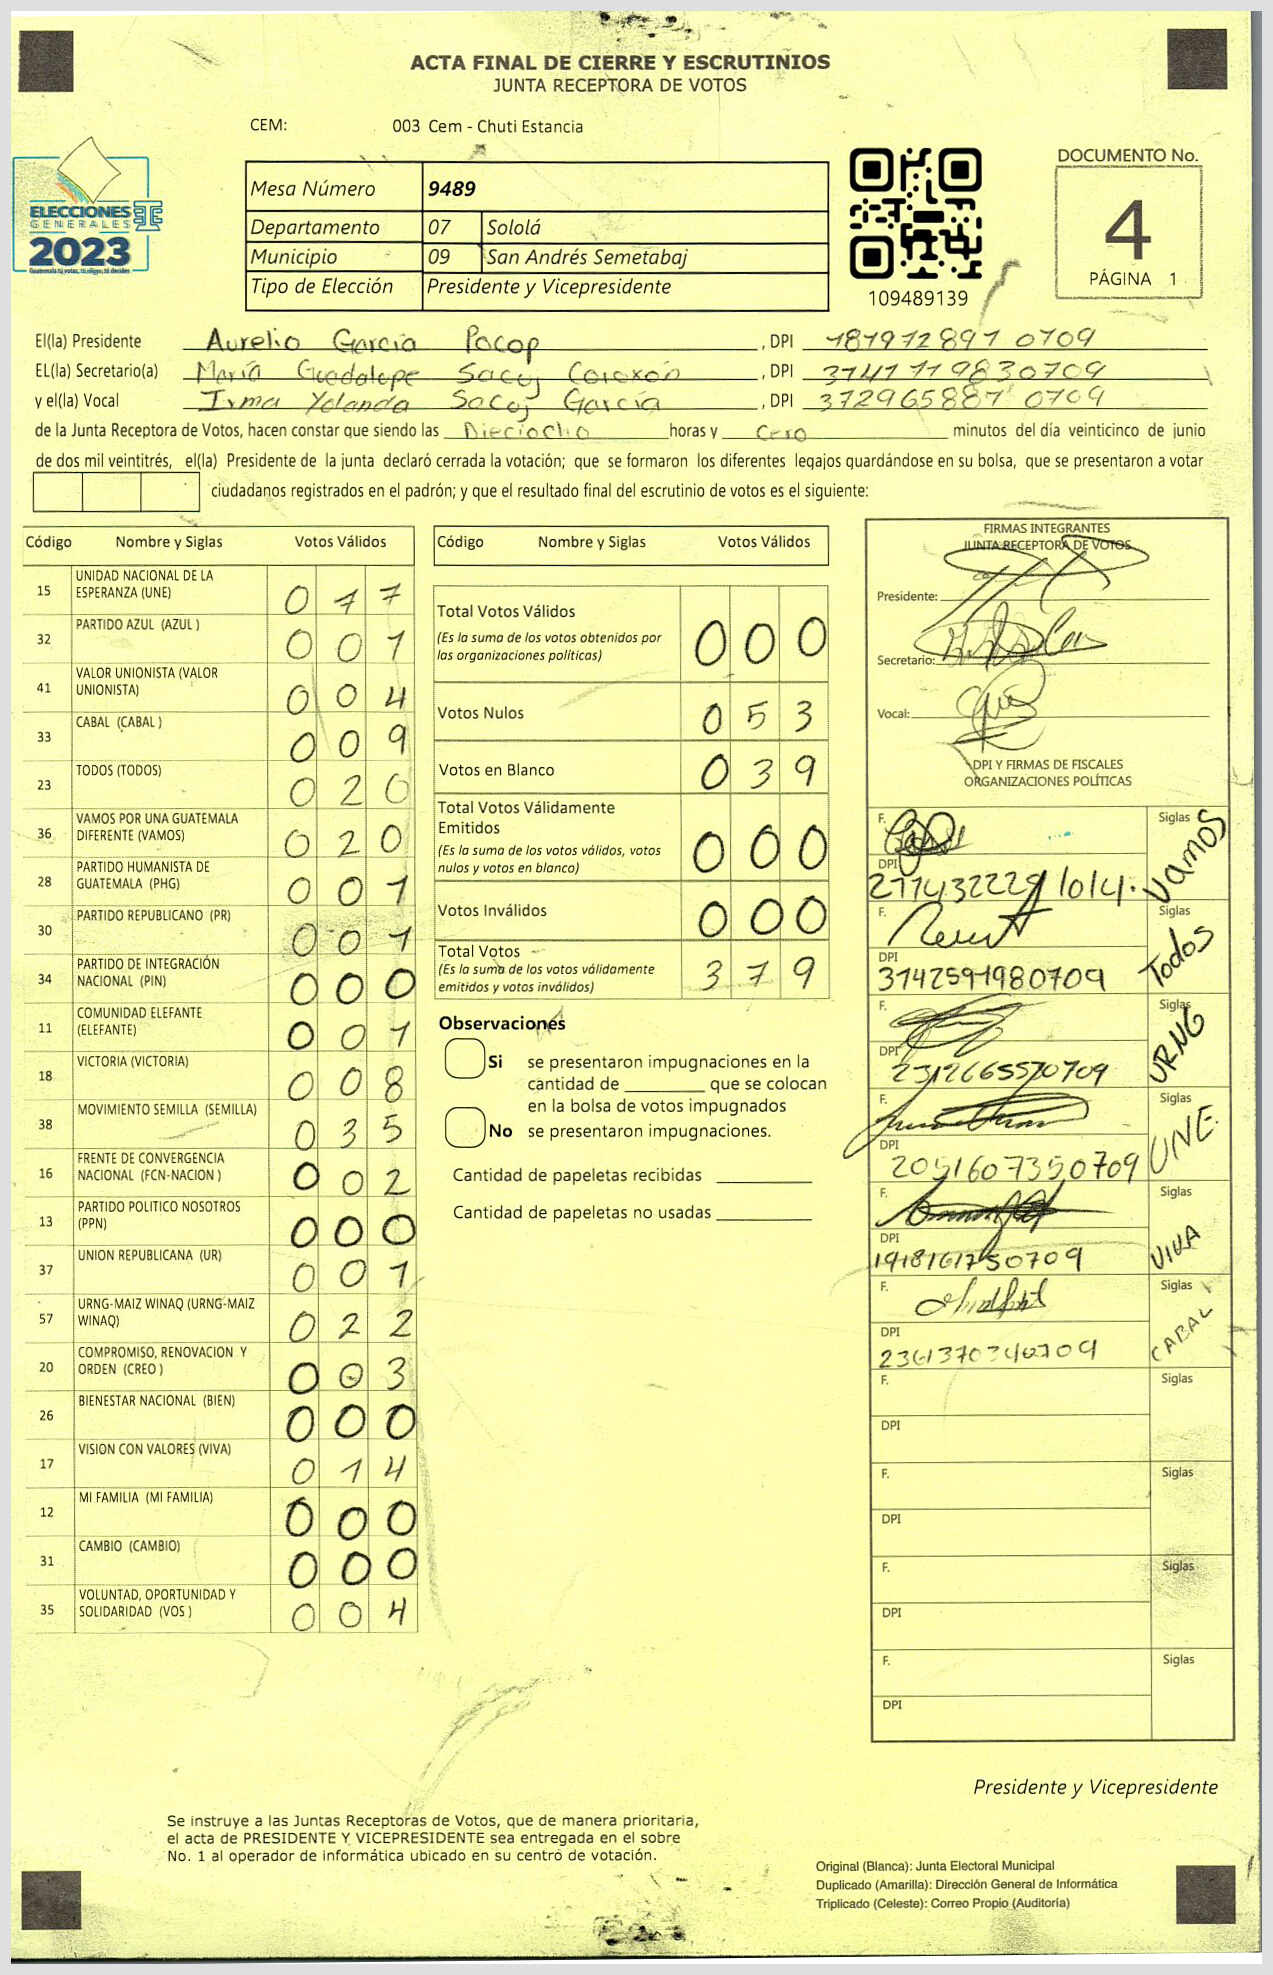 ACTA FINAL DE CIERRE Y ESCRUTINIOS
JUNTA RECEPTORA DE VOTOS
CEM: 003 Cem - Chuti Estancia
ELECCIONES
GENERALES
2023
Guatemala tú votas, tú eliges, tú decides
Mesa Número 9489
Departamento 07 Sololá
Municipio 09 San Andrés Semetabaj
Tipo de Elección Presidente y Vicepresidente
109489139
DOCUMENTO No.
4
PÁGINA 1
El(la) Presidente Aurelio García Pacop, DPI 187972897 0709
EL(la) Secretario(a) María Guadalupe Sacuj Coroxón, DPI 3141119830709
y el(la) Vocal Irma Yolanda Sacuj García, DPI 372965887 0709
de la Junta Receptora de Votos, hacen constar que siendo las Dieciocho horas y cero minutos del día veinticinco de junio
de dos mil veintitrés, el(la) Presidente de la junta declaró cerrada la votación; que se formaron los diferentes legajos guardándose en su bolsa, que se presentaron a votar
ciudadanos registrados en el padrón; y que el resultado final del escrutinio de votos es el siguiente:
Código Nombre y Siglas Votos Válidos
15 UNIDAD NACIONAL DE LA ESPERANZA (UNE) 0 7 7
32 PARTIDO AZUL (AZUL ) 0 0 1
41 VALOR UNIONISTA (VALOR UNIONISTA) 0 0 4
33 CABAL (CABAL ) 0 0 9
23 TODOS (TODOS) 0 2 0
36 VAMOS POR UNA GUATEMALA DIFERENTE (VAMOS) 0 2 0
28 PARTIDO HUMANISTA DE GUATEMALA (PHG) 0 0 1
30 PARTIDO REPUBLICANO (PR) 0 0 1
34 PARTIDO DE INTEGRACIÓN NACIONAL (PIN) 0 0 0
11 COMUNIDAD ELEFANTE (ELEFANTE) 0 0 1
18 VICTORIA (VICTORIA) 0 0 8
38 MOVIMIENTO SEMILLA (SEMILLA) 0 3 5
16 FRENTE DE CONVERGENCIA NACIONAL (FCN-NACION ) 0 0 2
13 PARTIDO POLITICO NOSOTROS (PPN) 0 0 0
37 UNION REPUBLICANA (UR) 0 0 1
57 URNG-MAIZ WINAQ (URNG-MAIZ WINAQ) 0 2 2
20 COMPROMISO, RENOVACION Y ORDEN (CREO ) 0 0 3
26 BIENESTAR NACIONAL (BIEN) 0 0 0
17 VISION CON VALORES (VIVA) 0 1 4
12 MI FAMILIA (MI FAMILIA) 0 0 0
31 CAMBIO (CAMBIO) 0 0 0
35 VOLUNTAD, OPORTUNIDAD Y SOLIDARIDAD (VOS ) 0 0 4
Código Nombre y Siglas Votos Válidos
Total Votos Válidos 0 0 0
(Es la suma de los votos obtenidos por
las organizaciones políticas)
Votos Nulos 0 5 3
Votos en Blanco 0 3 9
Total Votos Válidamente
Emitidos 0 0 0
(Es la suma de los votos válidos, votos
nulos y votos en blanco)
Votos Inválidos 0 0 0
Total Votos 3 7 9
(Es la suma de los votos válidamente
emitidos y votos inválidos)
Observaciones
Si se presentaron impugnaciones en la
cantidad de ________ que se colocan
en la bolsa de votos impugnados
No se presentaron impugnaciones.
Cantidad de papeletas recibidas
Cantidad de papeletas no usadas
FIRMAS INTEGRANTES
JUNTA RECEPTORA DE VOTOS
Presidente:
Secretario:
Vocal:
DPI Y FIRMAS DE FISCALES
ORGANIZACIONES POLÍTICAS
F. Siglas Vamos
DPI
F. Siglas Todos
DPI 3142591980709
F. Siglas URNG
DPI 2312665570709
F. Siglas UNE
DPI 2051607350709
F. Siglas VIVA
DPI 1918161750709
F. Siglas CABAL
DPI 2361370340709
F. Siglas
DPI
F. Siglas
DPI
F. Siglas
DPI
F. Siglas
DPI
Presidente y Vicepresidente
Se instruye a las Juntas Receptoras de Votos, que de manera prioritaria,
el acta de PRESIDENTE Y VICEPRESIDENTE sea entregada en el sobre
No. 1 al operador de informática ubicado en su centro de votación.
Original (Blanca): Junta Electoral Municipal
Duplicado (Amarilla): Dirección General de Informática
Triplicado (Celeste): Correo Propio (Auditoría)